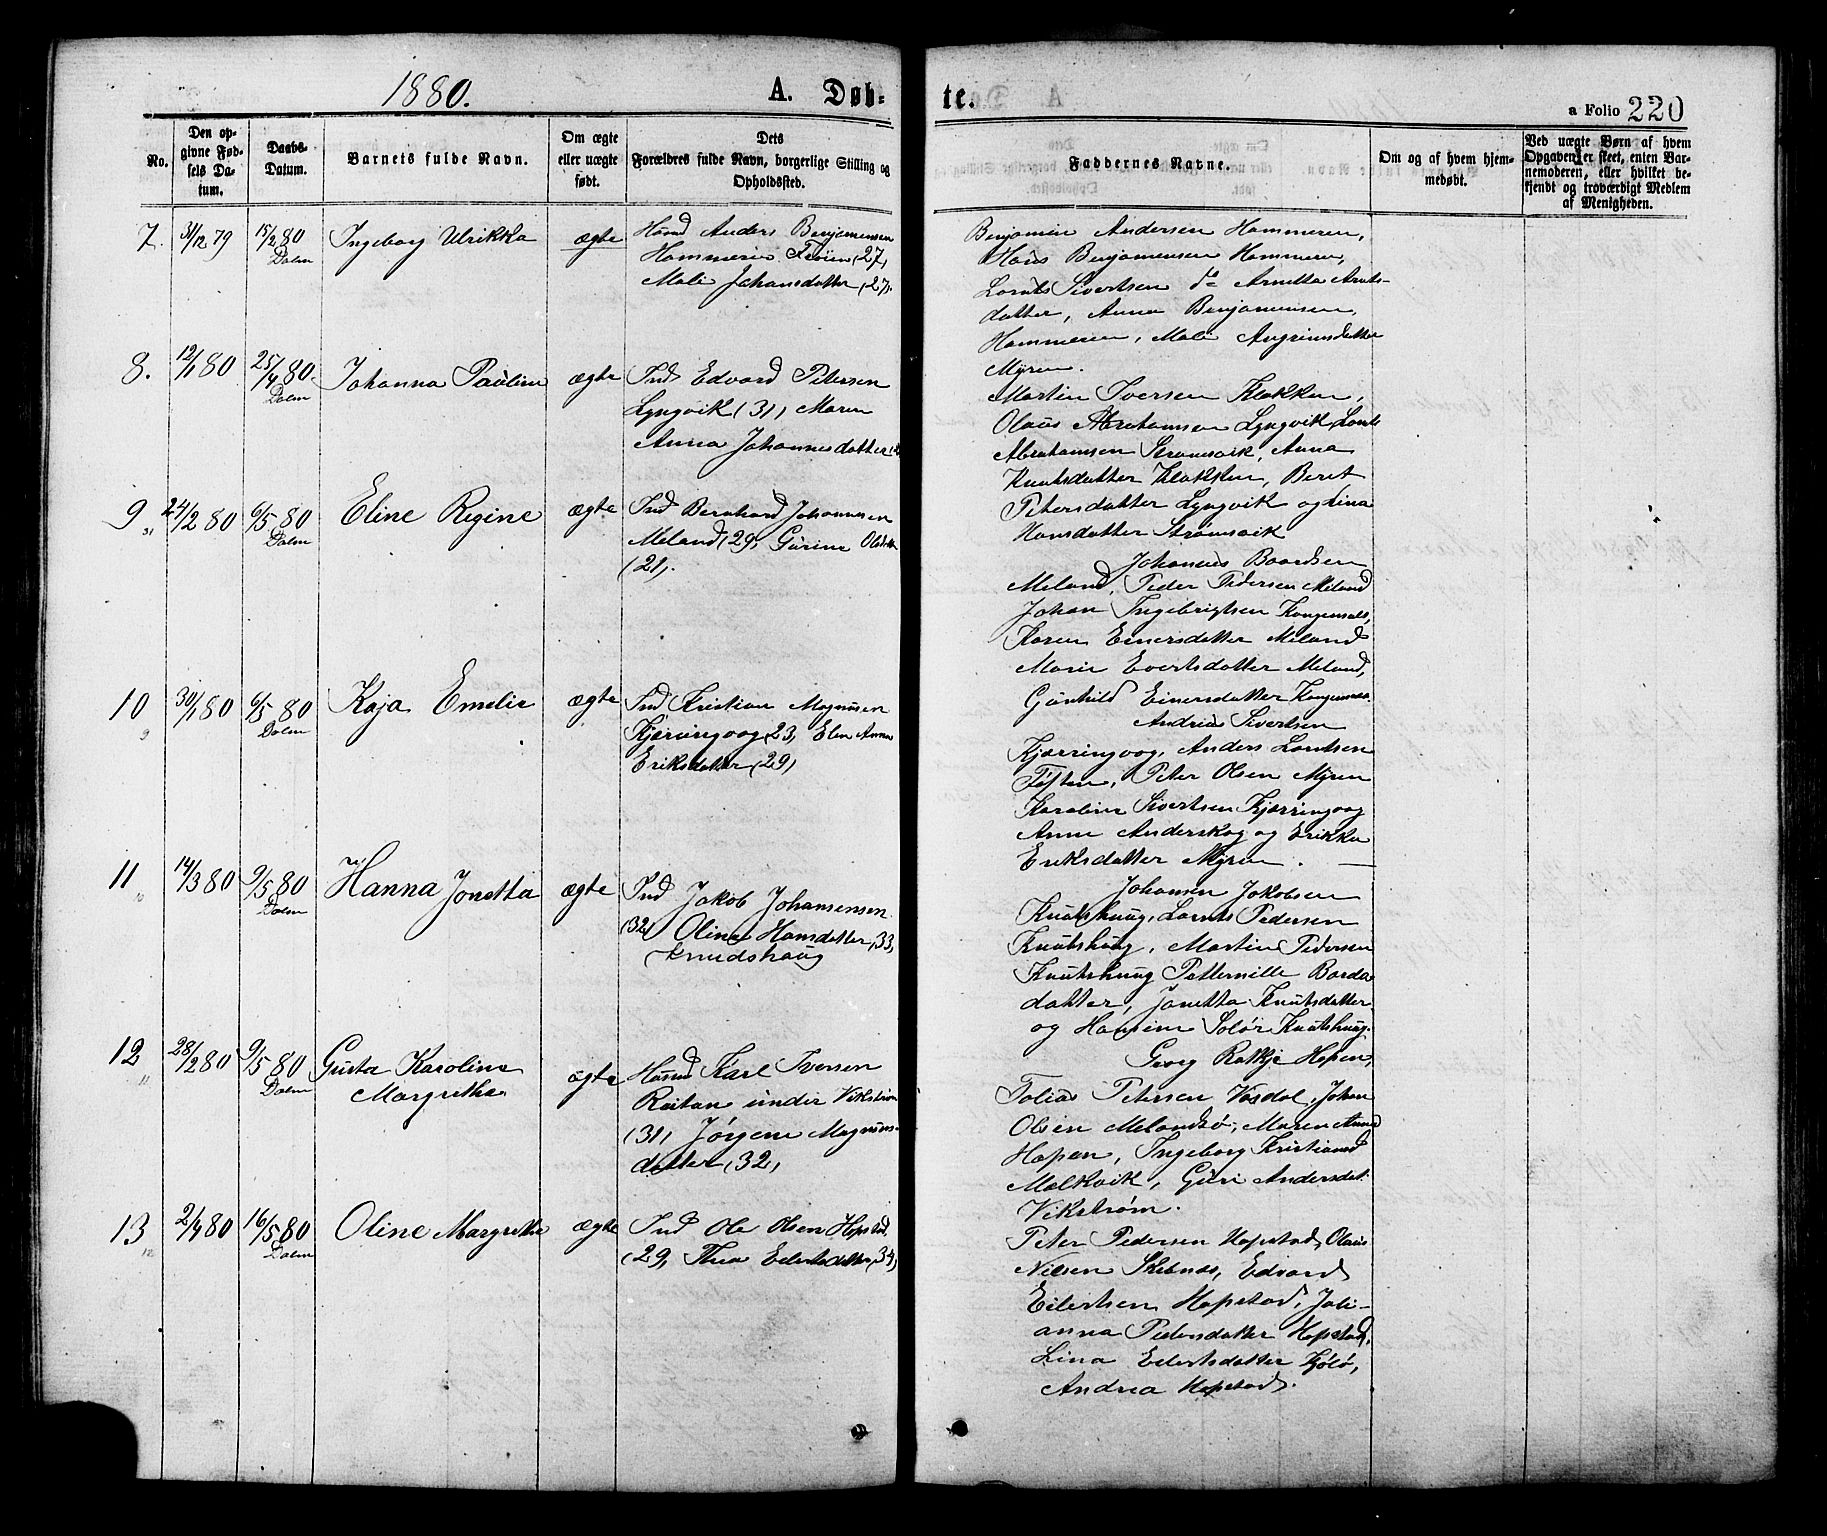 1880.
A. Døb-
te.
a Folio 220
No.
Den op-
givne Fød-
sels Da-
tum.
Daabs-
Datum.
Barnets fulde Navn.
Om ægte
eller uægte
født.
Dets
Forældres fulde Navn, borgerlige Stilling og
Opholdssted.
Faddernes Navne.
Om og af hvem hjem-
medøbt.
Ved uægte Børn af hvem
Opgaven er skeet, enten Bar-
nemoderen, eller hvilket be-
kjendt og troværdigt Medlem
af Menigheden.
7. 31/12 79 15/2 80 Ingeborg Ulrikka ægte
Dolm
Husd Anders Benjamensen
Hammeren Frøien (27)
Mali Johansdatter (27).
Benjamin Andersen Hammeren,
Hans Benjamensen Hammeren,
Lornts Sivertsen do Arnetta Arnts-
datter, Anna Benjamensen
Hammeren, Mali Angrimsdatter
Myren.
8. 12/1 80 25/4 80. Johanna Pauline ægte
Dolm
Ind Edvard Petersen
Lyngvik (31) Maren
Anna Johannesdatter
Martin Iversen Klakken,
Olaus Abrahamsen Lyngvik, Lornts
Abrahamsen Strømsvik, Anna
Knutsdatter Klakken, Beret
Petersdatter Lyngvik og Lina
Hansdatter Strømsvik
9 24/2 80 6/5 80 Eline Regine ægte
Dolm
Ind Bernhard Johannesen
Meland (29) Gurine Olsdatter
(21).
Johannes Baardsen
Meland, Peder Pedersen Meland
Johan Ingebrigtsen Kongensvold,
Karen Einersdatter Meland
Marie Evertsdatter Meland,
Gunhild Einersdatter
10 30/1 80 6/5 80 Kaja Emelie ægte
9 Dolm
Ind Kristian Magnusen
Kjærringvaag (23) Elen Anna
Eriksdatter (29)
Andreas Sivertsen
Kjærringvaag, Anders Lorntsen
Tøften, Peter Olsen Myren
Karoline Sivertsen Kjærringvaag
Anne Anderskog og Erikka
Eriksdatter Myren.
11 14/3 80 9/5 80 Hanna Jonetta ægte
10 Dolm
Ind Jakob Johansensen
(32) Oline Hansdatter (33)
Knudshaug
Johansen Jakobsen
Knutshaug, Lornts Pedersen
Knutshaug, Martin Pedersen
Knutshaug Petternille Bards
datter, Jonetta Knutsdatter
og Hansine Solør Knutshaug.
12 28/2 80 9/5 80 Gusta Karoline ægte
11 Dolm
Margrethe
Husmd Karl Iversen
Reitan under Vikstrøm
(31) Jørgene Magnus-
datter (32)
Georg Ratkje Hopen,
Tobias Petersen Vasdal, Johan
Olsen Melandsø, Maren Anna
Hopen, Ingeborg Kristiansd
Malkvik, Guri Andersdat.
Vikstrøm.
13 2/4 80 16/5 80 Oline Margrethe ægte
12 Dolm
Ind Ole Olsen Hopstad,
(29) Thea Eilertsdatter (34)
Peter Pedersen Hopstad, Olaus
Nielsen Skibnæs, Edvard
Eilertsen Hopstad, Joh-
anna Pedersdatter Hopstad,
Lina Eilertsdatter Kjølsø,
Andrea Hopstad.